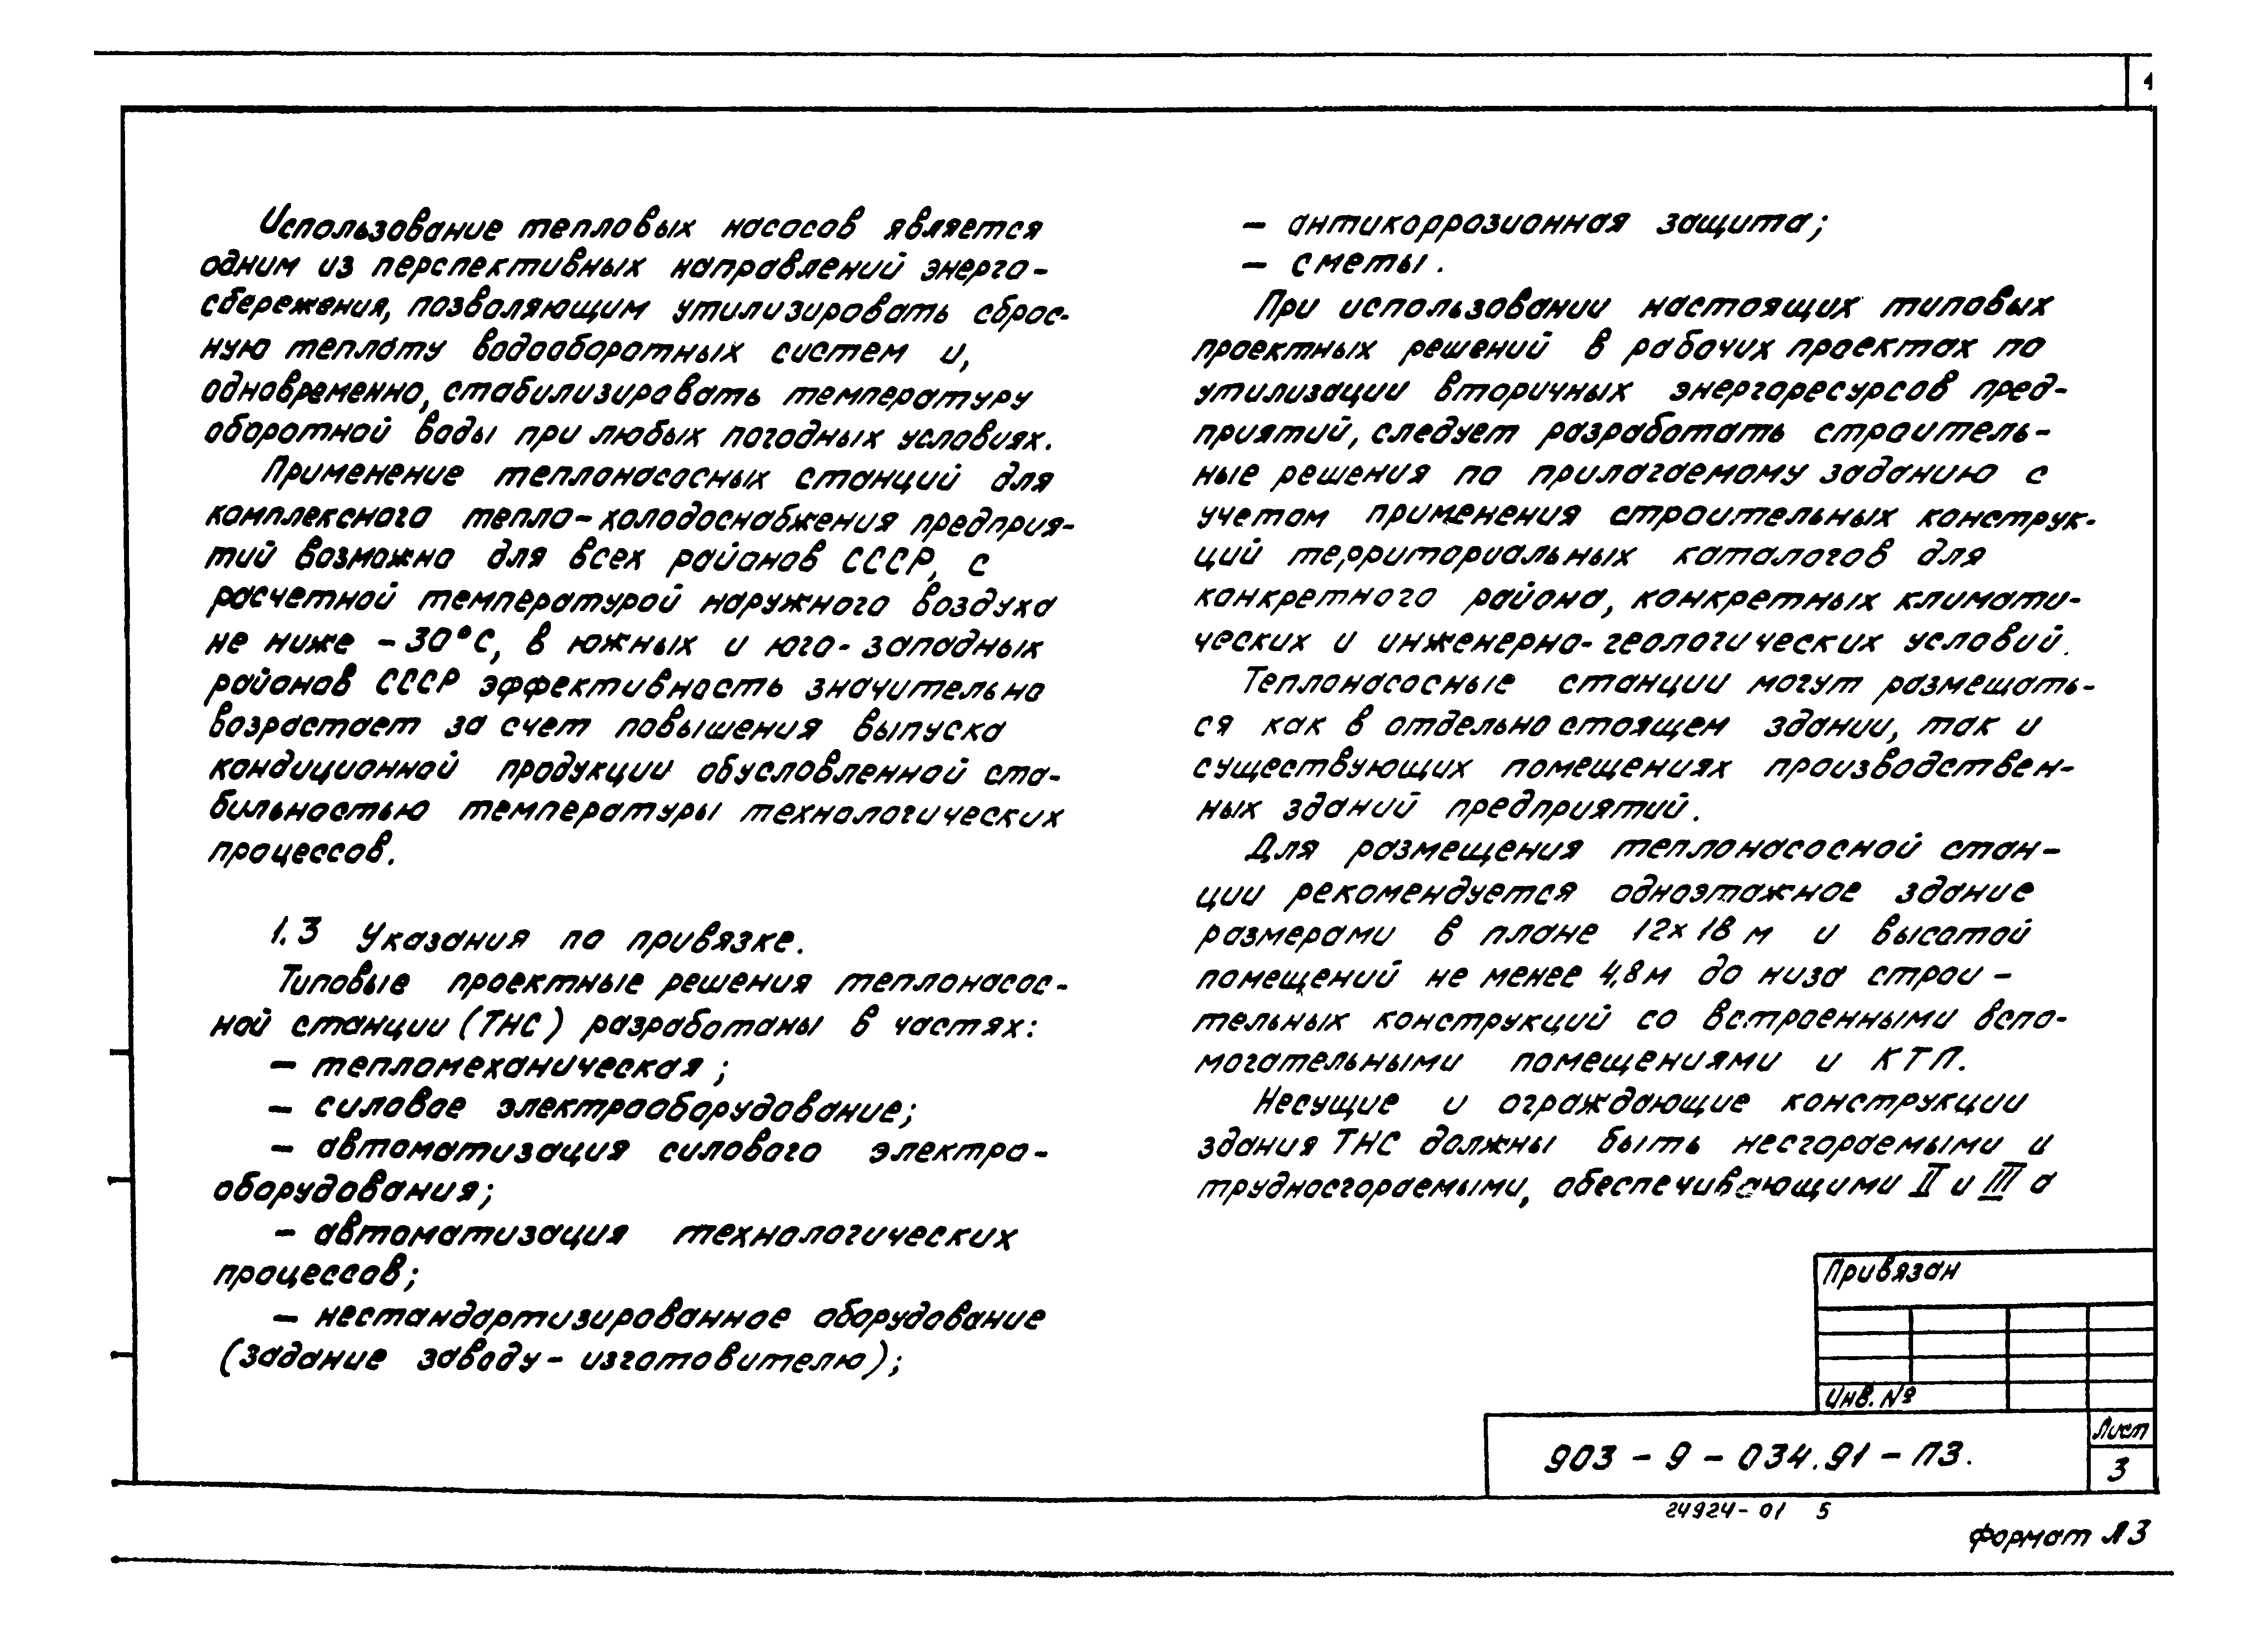 4
Использование тепловых насосов является
одним из перспективных направлений энерго-
сбережения, позволяющим утилизировать сброс-
ную теплоту водооборотных систем и,
одновременно, стабилизировать температуру
оборотной воды при любых погодных условиях.
Применение теплонасосных станций для
комплексного тепло-холодоснабжения предприя-
тий возможно для всех районов СССР, с
расчетной температурой наружного воздуха
не ниже -30°С, в южных и юго-западных
районов СССР эффективность значительно
возрастает за счет повышения выпуска
кондиционной продукции обусловленной ста-
бильностью температуры технологических
процессов.
1.3 Указания по привязке.
Типовые проектные решения теплонасос-
ной станции (ТНС) разработаны в частях:
- тепломеханическая;
- силовое электрооборудование;
- автоматизация силового электро-
оборудования;
- автоматизация технологических
процессов;
- нестандартизированное оборудование
(задание заводу-изготовителю);
- антикоррозионная защита;
- сметы.
При использовании настоящих типовых
проектных решений в рабочих проектах по
утилизации вторичных энергоресурсов пред-
приятий, следует разработать строитель-
ные решения по прилагаемому заданию с
учетом применения строительных конструк-
ций территориальных каталогов для
конкретного района, конкретных климати-
ческих и инженерно-геологических условий.
Теплонасосные станции могут размещать-
ся как в отдельно стоящем здании, так и
существующих помещениях производствен-
ных зданий предприятий.
Для размещения теплонасосной стан-
ции рекомендуется одноэтажное здание
размерами в плане 12х18 м и высотой
помещений не менее 4,8м до низа строи-
тельных конструкций со встроенными вспо-
могательными помещениями и КТП.
Несущие и ограждающие конструкции
здания ТНС должны быть несгораемыми и
трудносгораемыми, обеспечивающими II и III а
Привязан
Инв. №
903-9-034.91-ПЗ.
Лист
3
24924-01 5
Формат А3